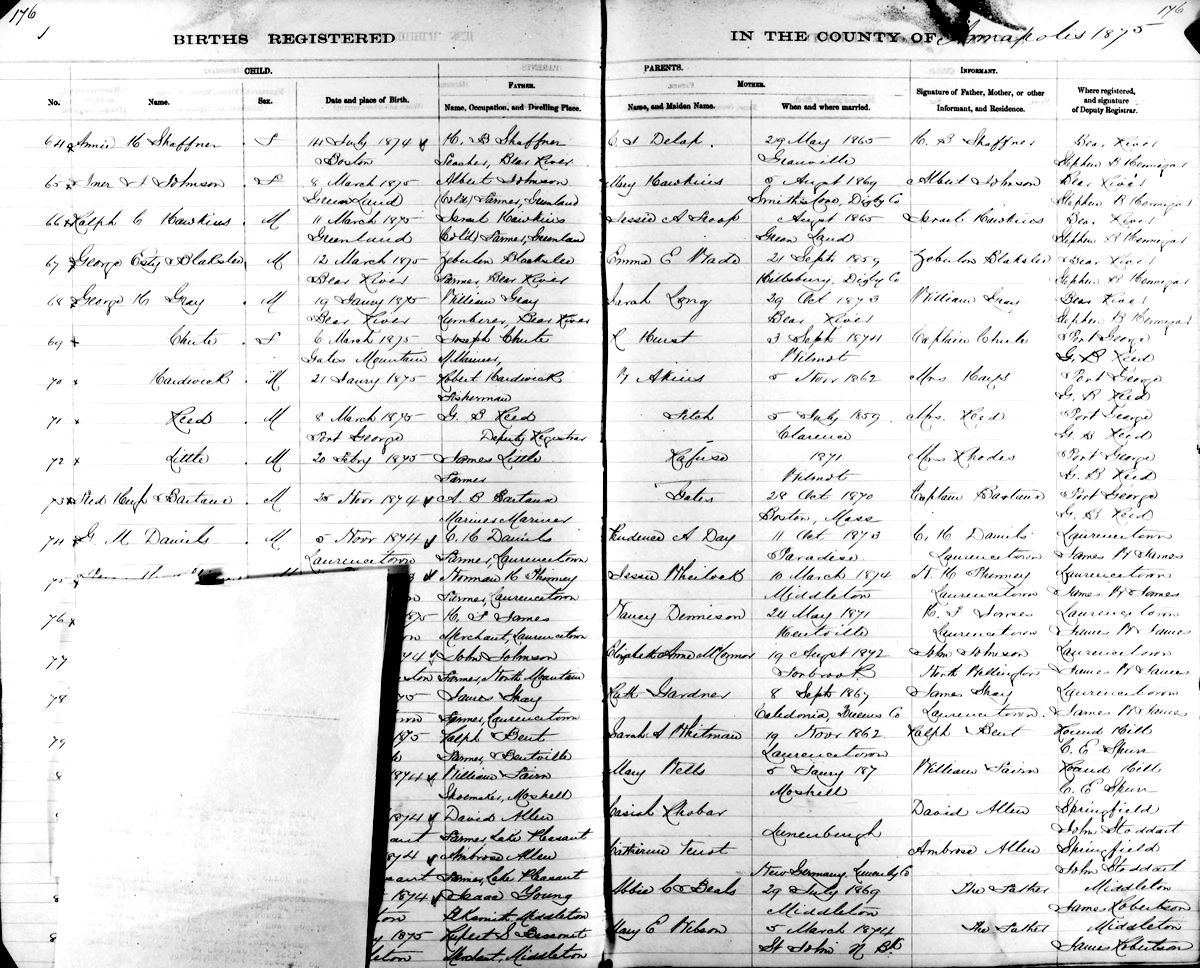 176
176
BIRTHS REGISTERED IN THE COUNTY OF Annapolis 1875
CHILD. PARENTS. INFORMANT.
FATHER. MOTHER.
No. Name. Sex. Date and place of Birth. Name, Occupation, and Dwelling Place. Name, and Maiden Name. When and where married. Signature of Father, Mother, or other Informant, and Residence. Where registered, and signature of Deputy Registrar.
64 Annie H Shaffner F 14 July 1874 H. B Shaffner 29 May 1865 H. B Shaffner Bear River
Boston Teacher, Bear River Granville Stephen B Hennigar
65 Johnson F 8 March 1875 Albert Johnson Mary Hawkins 5 Augst 1869 Albert Johnson Bear River
Greenland (Cold) Farmer, Greenland Smiths Cove, Digby Co Stephen B Hennigar
66 Ralph C Hawkins M 11 March 1875 Israel Hawkins Jessie A Roop Augst 1865 Israel Hawkins Bear River
Greenland (Cold) Farmer, Greenland Green Land Stephen B Hennigar
67 George Esty Blakslee M 12 March 1875 Zebulon Blakslee Emma E Wade 21 Septr 1859 Zebulon Blakslee Bear River
Bear River Farmer, Bear River Hillsburg, Digby Co Stephen B Hennigar
68 George H Gray M 19 Janry 1875 William Gray Sarah Long 29 Oct 1873 William Gray Bear River
Bear River Lumberer, Bear River Bear River Stephen B Hennigar
69 Chute F 6 March 1875 Joseph Chute Hurst 3 Septr 1874 Captain Chute Port George
Gates Mountain Mariner Wilmot G. B Reed
70 Hardwick M 21 Janry 1875 Robert Hardwick Akins 5 Novr 1862 Mrs Port George
Fisherman G. B Reed
71 Reed M 8 March 1875 G. B Reed Fitch 5 July 1859 Mrs. Reed Port George
Port George Deputy Registrar Clarence G. B Reed
72 Little M 20 Febry 1875 James Little Rafuse 1871 Mrs Rhodes Port George
Farmer Wilmot G. B Reed
73 Bartaux M 25 Novr 1874 A. B Bartaux Gates 28 Oct 1870 Captain Bartaux Port George
Marines Mariner Boston, Mass G. B Reed
74 G. M Daniels M 5 Novr 1874 C. H Daniels Prudence A Day 11 Oct 1873 C. H Daniels Laurencetown
Laurencetown Farmer, Laurencetown Paradise Laurencetown James W James
75 Norman H Phinney Jessie Wheelock 10 March 1874 N. H Phinney Laurencetown
Farmer, Laurencetown Middleton Laurencetown James W James
76 H. T James Nancy Dennison 24 May 1871 H. T James Laurencetown
Merchant, Laurencetown Kentville Laurencetown James W James
77 John Johnson Elizabeth Anne McConnor 19 Augst 1872 John Johnson Laurencetown
Farmer, North Mountain Torbrook North Williamston James W James
78 James Shay Ruth Gardner 8 Septr 1867 James Shay Laurencetown
Farmer, Laurencetown Caledonia, Queens Co Laurencetown James W James
79 1875 Ralph Bent Sarah A Whitman 19 Novr 1862 Ralph Bent Round Hill
Farmer, Bentville Laurencetown C. E Spurr
8 1874 William Fairn Mary Wells 5 Janry 187 William Fairn Round Hill
Shoemaker, Moshell Moshell C. E Spurr
1874 David Allen Casiah Rhobar David Allen Springfield
Farmer, Lake Pleasant Lunenburgh John Stoddart
1874 Ambrose Allen Catherine Ambrose Allen Springfield
Farmer, Lake Pleasant New Germany, Lunenbg Co John Stoddart
8 1874 Isaac Young Abbie C Beals 29 July 1869 The Father Middleton
Bl Ksmith, Middleton Middleton James Robertson
8 1875 Rupert S Bessonet Mary E Wilson 5 March 1874 The Father Middleton
Merchant, Middleton St John N Bk James Robertson